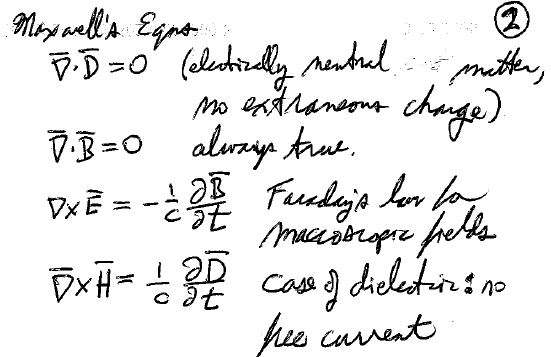 Maxwell's Eqns. ②
∇̅·D̅ = 0 (electrically neutral matter,
no extraneous charge)
∇̅·B̅ = 0 always true.
∇×E̅ = -1/c ∂B̅/∂t Faraday's law for
macroscopic fields
∇̅×H̅ = 1/c ∂D̅/∂t Case of dielectric: no
free current